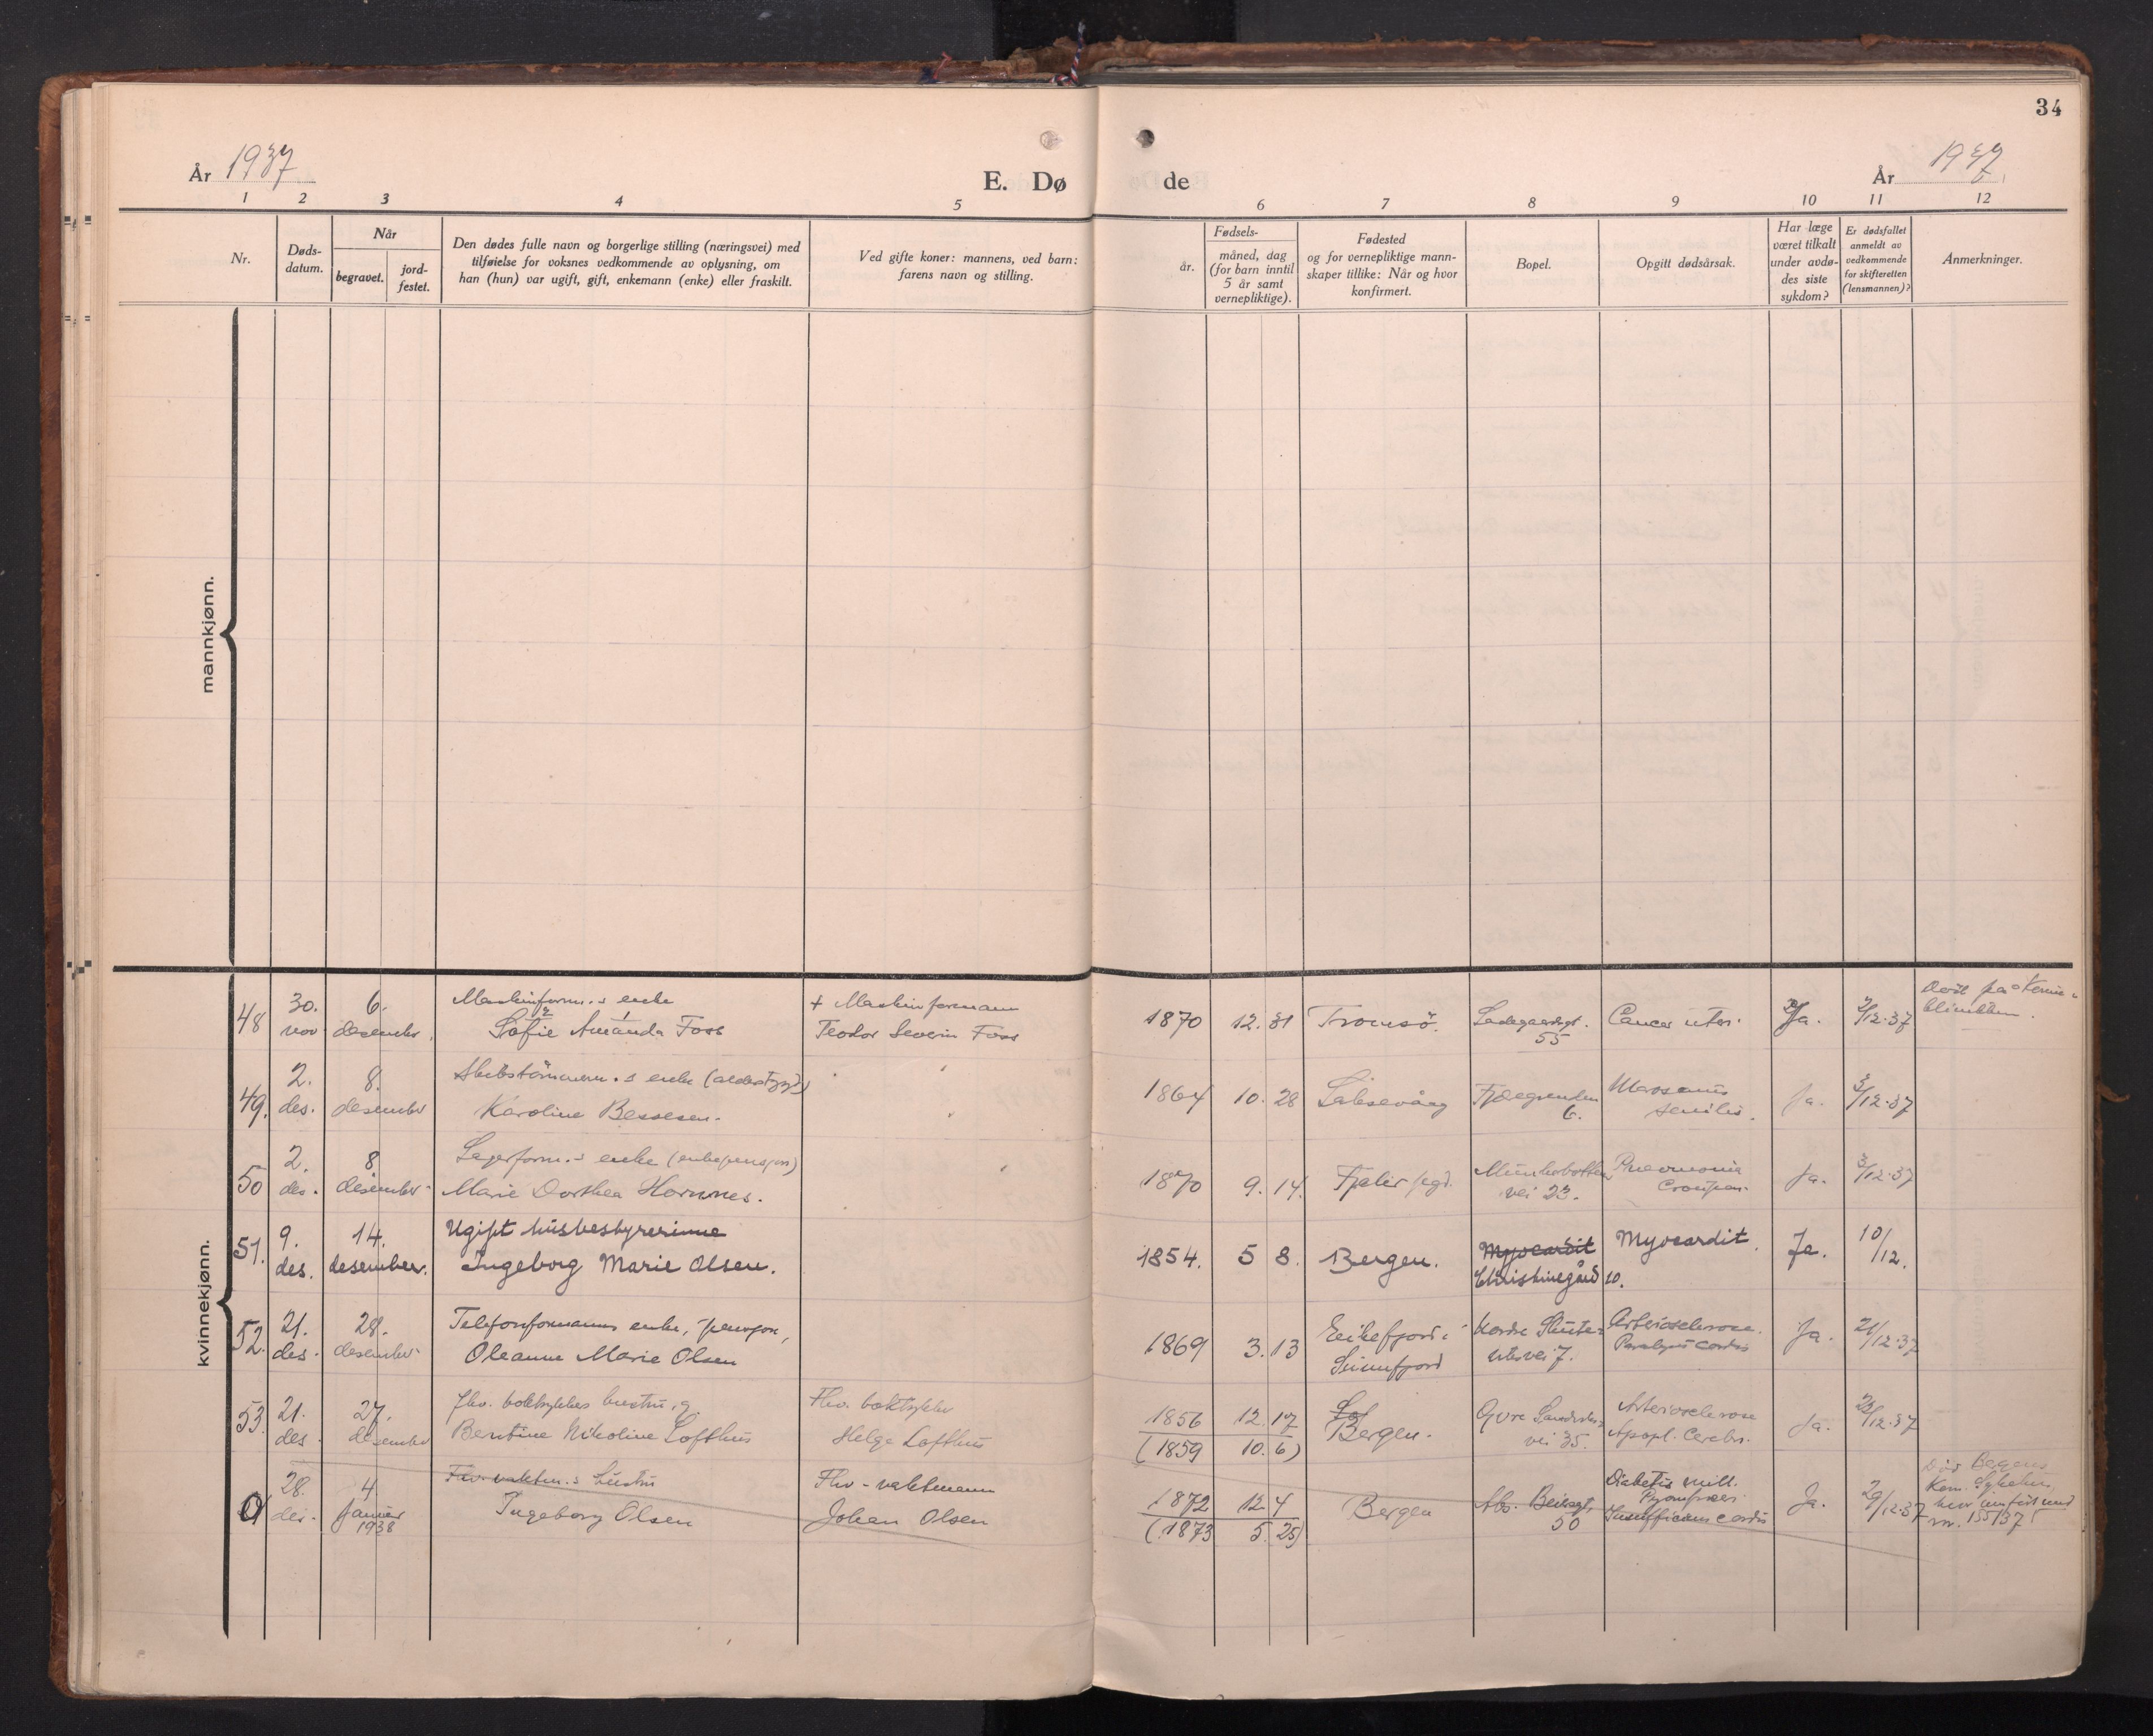 34
År 1937
E. Dø
de
År 1937
1 2 3 4 5 6 7 8 9 10 11 12
Nr.
Døds-
datum.
Når
begravet.
jord-
festet.
Den dødes fulle navn og borgerlige stilling (næringsvei) med
tilføielse for voksnes vedkommende av oplysning, om
han (hun) var ugift, gift, enkemann (enke) eller fraskilt.
Ved gifte koner: mannens, ved barn:
farens navn og stilling.
Fødsels-
år.
måned, dag
(for barn inntil
5 år samt
vernepliktige).
Fødested
og for vernepliktige mann-
skaper tillike: Når og hvor
konfirmert.
Bopel.
Opgitt dødsårsak.
Har læge
været tilkalt
under avdø-
des siste
sykdom?
Er dødsfallet
anmeldt av
vedkommende
for skifteretten
(lensmannen)?
Anmerkninger.
mannkjønn.
kvinnekjønn.
48
30.
nov
6.
desember.
Maskinform.s enke
Sofie Amanda Foss
+ Maskinformann
Teodor Severin Foss
1870 12. 31
Tromsö.
Ladegaardsgt.
55
Cancer uteri.
Ja.
2/12.37
Død på Kvinne-
klinikken.
49.
2.
des.
8.
desember
enke (alderstrygd)
Karoline Bessesen.
1864 10. 28
Laksevåg
6.
Marasmus
senilis.
Ja.
3/12.37
50
2.
des.
8.
desember
Lagerform.s enke (enkepensjon)
Marie Dorthea Hornnes.
1870 9. 14.
Fjaler pgd.
vei 23.
Pneumonia
Croupos.
Ja.
3/12.37
51.
9.
des.
14.
desember.
Ugift husbestyrerinne
Ingeborg Marie Olsen.
1854. 5 8.
Bergen.
Myocardit
Christinegård 10.
Myocardit.
Ja.
10/12.
52.
21.
des.
28.
desember
Telefonformanns enke, pensjon,
Oleanne Marie Olsen
1869 3. 13
Eikefjord i
Sunnfjord
Nordre
7.
Arteriosclerose.
Paralysis cordis
Ja.
21/12.37
53.
21.
des.
27.
desember
Fhv. boktrykkers hustru, g.
Bentine Nikoline Lofthus
Fhv. boktrykker
Helge Lofthus
1856 12. 17
(1859 10. 6)
Bergen.
vei 35.
Arteriosclerose
Apopl. Cerebri.
Ja.
23/12.37
0
28.
des.
4.
januar
1938
Fhv. vaktm.s hustru
Ingeborg Olsen
Fhv. vaktmann
Johan Olsen
1872 12. 4
(1873 5. 25)
Bergen
50
Diabetes mill.
Insufficiens cordis
Ja.
29/12.37
Død Bergens
Kom. Sykehus,
hvor innført under
nr. 155/37